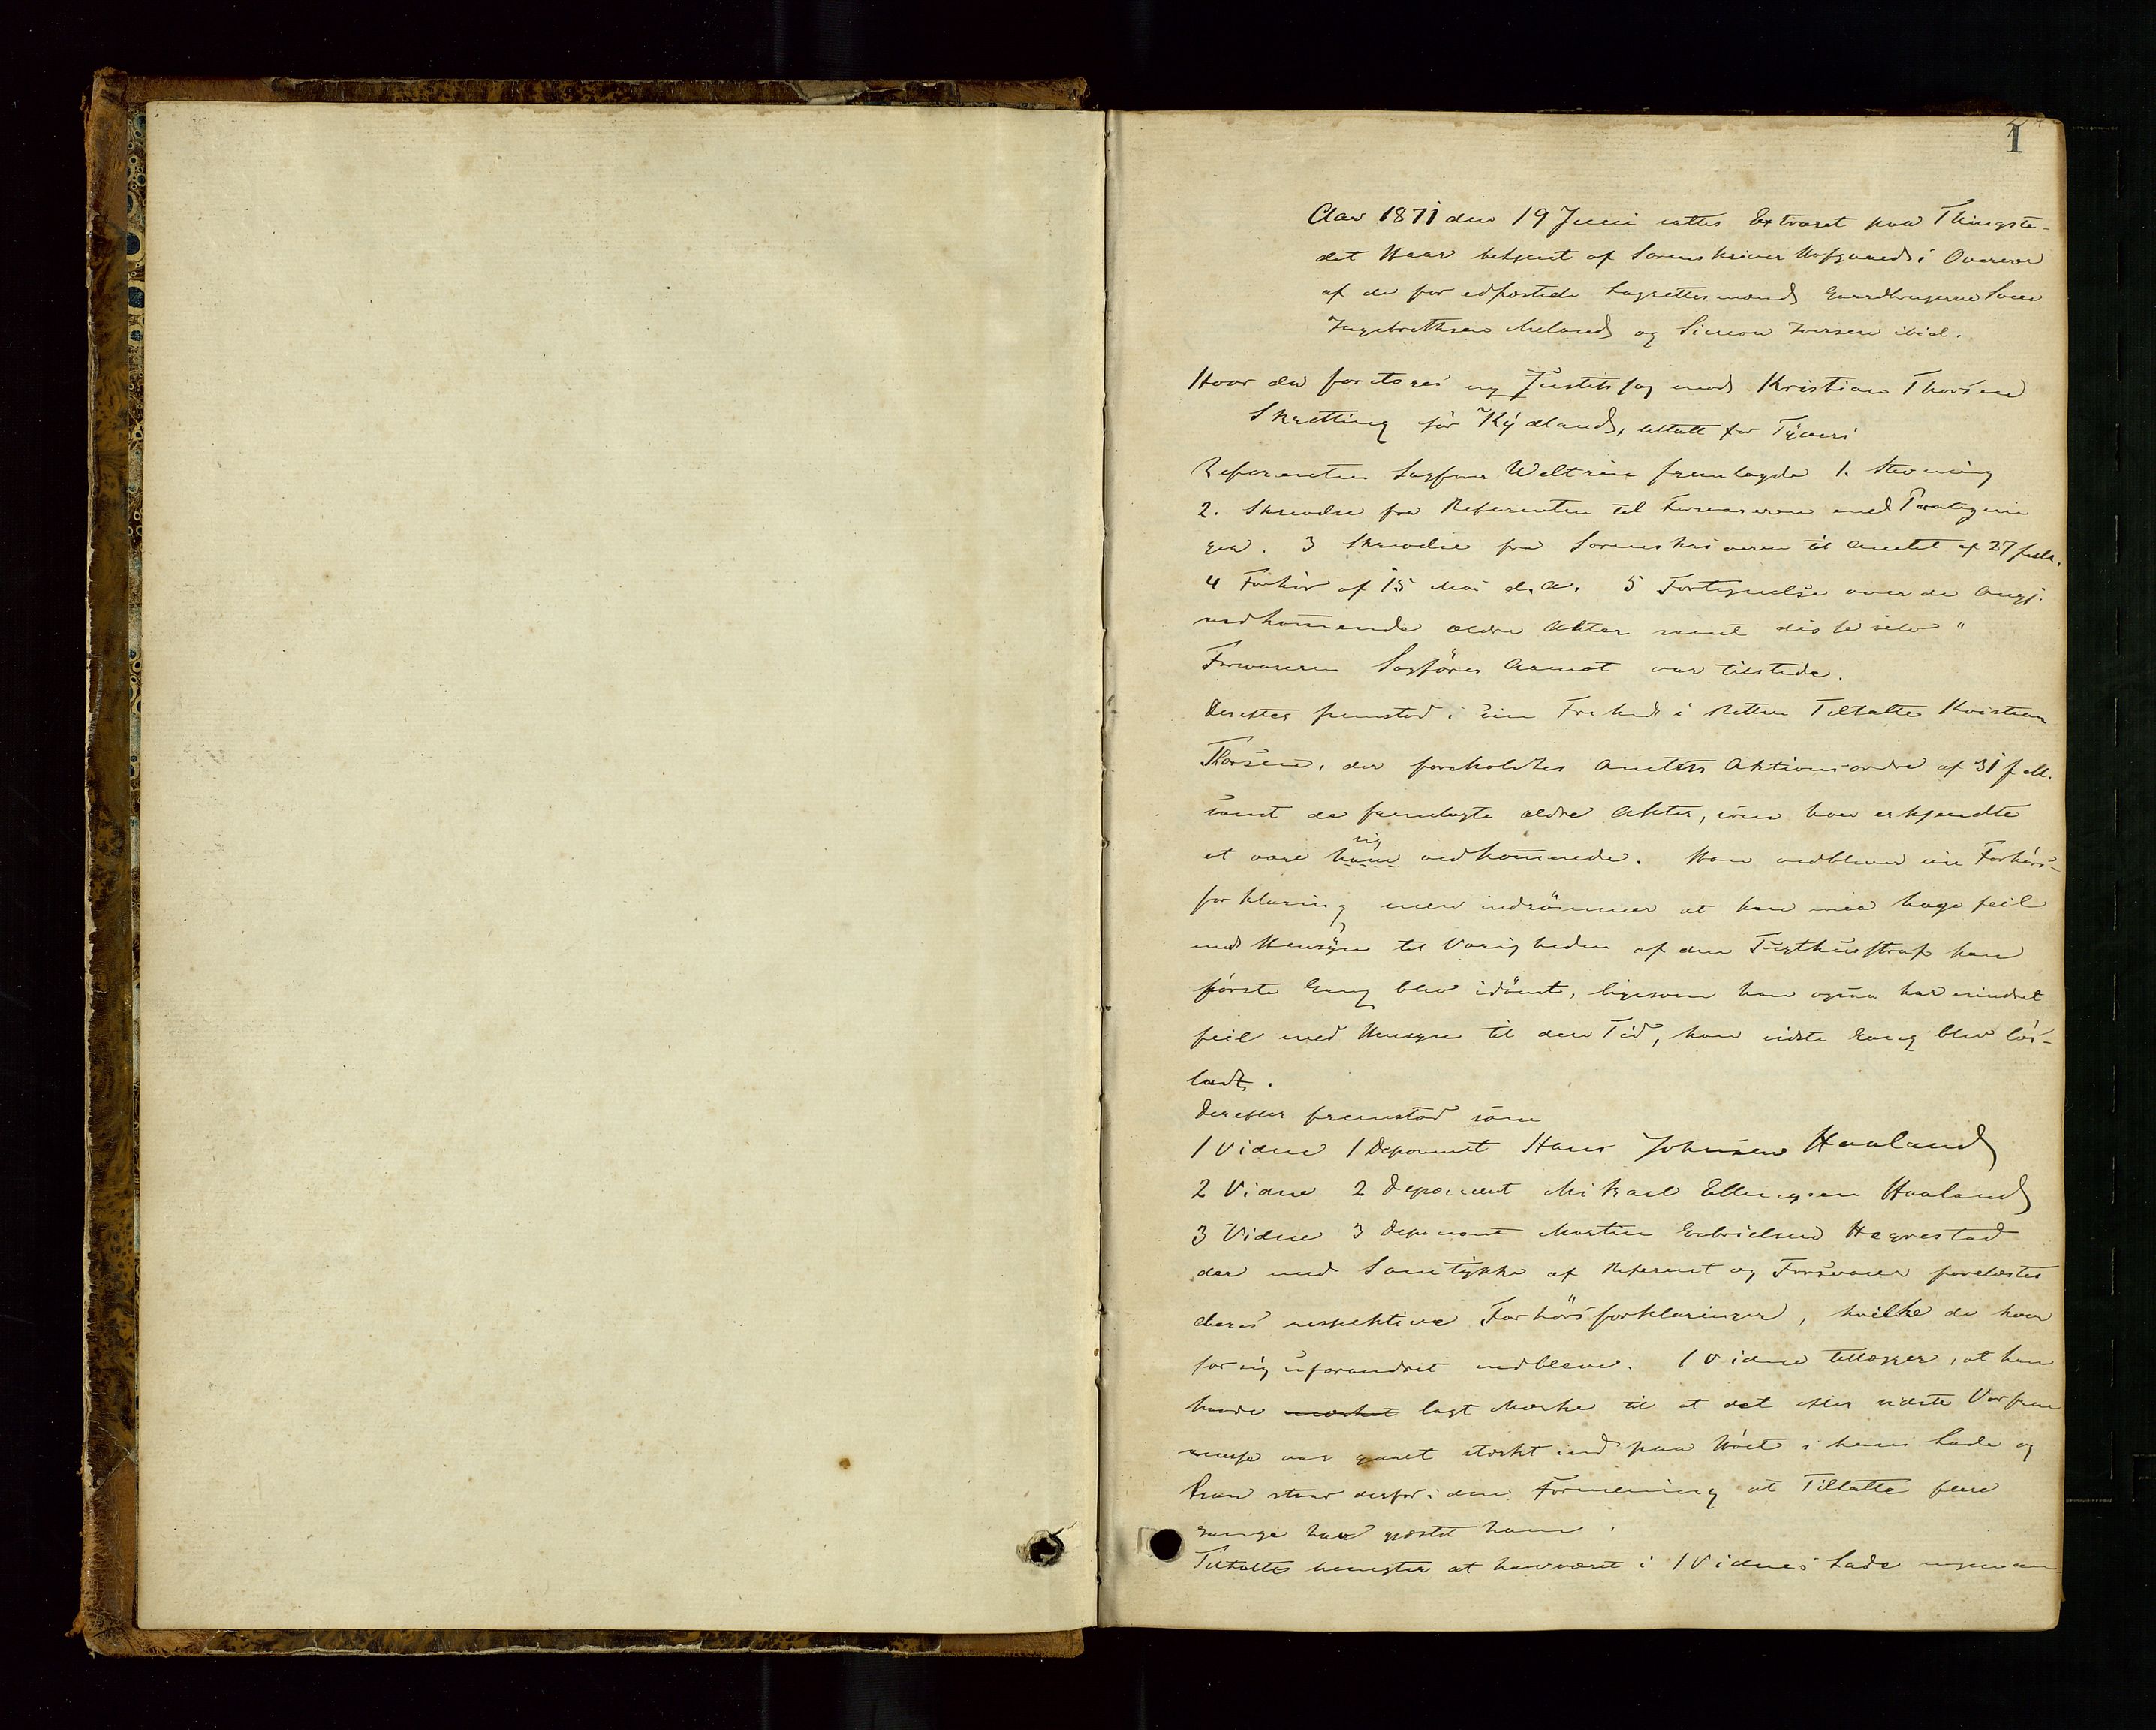 1
Aar 1871 den 19 Juni sattes Extraret paa Thingste-
det Haar betjent af Sorenskriver i Overvær
af de for edfæstede Lagrettesmænd Gaardbrugerne
Ingebrethsen Meland og Simon Iversen ibid.
Hvor da foretoges ny Justitssag mod Kristian Thorsen
Skretting för Kÿdland, tiltalt for Tÿveri
Referenten Sagförer fremlagde 1. Stevning
2. Skrivelse fra Referenten til Forsvareren med Paategnin
ger. 3 Skrivelse fra Sorenskriveren til Amtet af 27
4 Forhör af 15 Mai d. A. 5 Fortegnelse over de Angj.
vedkommende ældre Akter samt disse selv "
Forsvareren Sagförer Aamot var tilstede.
Derefter fremstod i sin Frihed i Retten Tiltalte Kristian
Thorsen, der foreholdtes Amtets Aktionsordre af 31 f. M.
samt de fremlagte ældre Akter, som han erkjendte
sig
at være ham vedkommende. Han vedbliver sin Forhörs-
forklaring, men indrömmer at han maa tage feil
med Hensÿn til Varigheden af den Tugthusstraf han
förste Gang blev idömt, ligesom han ogsaa har erindret
feil med Hensyn til den Tid, han sidste Gang blev lös-
ladt.
Derefter fremstod som
1 Vidne 1 Deponent Hans Johnsen Haaland
2 Vidne 2 Deponent Mikael Ellingsen Haaland
3 Vidne 3 Deponent Martin Gabrielsen Hegrestad
der med Samtÿkke af Referent og Forsvarer forelæstes
deres respektive Forhörsforklaringer, hvilke de hver
for sig uforandret vedbleve. 1 Vidne tillægger, at han
havde mærket lagt Mærke til at det efter sidste Vorfrue
messe var gaaet stærkt ind paa Höet i hans Lade og
han staar derfor i den Formening at Tiltalte flere
Gange har gjæstet ham.
Tiltalte benegter at have været i 1 Vidnes Lade